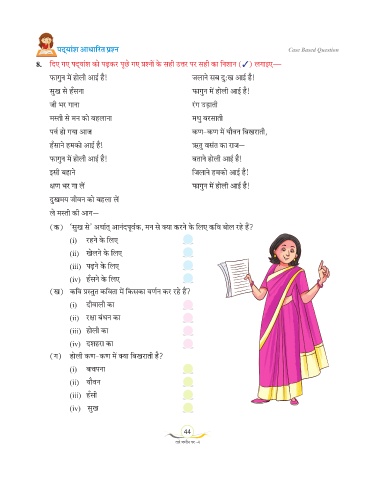 पद्यांश आधारित प्रश्न
Case Based Question
8. दिए गए पद्यांश को पढ़कर पूछे गए प्रश्नों के सही उत्तर पर सही का निशान (✓) लगाइए—
फागुन में होली आई है!
सुख से हँसना
जी भर गाना
मस्ती से मन को बहलाना
पर्व हो गया आज
हँसाने हमको आई है!
फागुन में होली आई है!
इसी बहाने
क्षण भर गा लें
दुखमय जीवन को बहला लें
ले मस्ती की आग—
जलाने सब दु:ख आई है!
फागुन में होली आई है!
रंग उड़ाती
मधु बरसाती
कण-कण में यौवन बिखराती,
ऋतु वसंत का राज—
बताने होली आई है!
जिलाने हमको आई है!
फागुन में होली आई है!
(क) ‘सुख से’ अर्थात् आनंदपूर्वक, मन से क्या करने के लिए कवि बोल रहे हैं?
(i) रहने के लिए
(ii) खेलने के लिए
(iii) पढ़ने के लिए
(iv) हँसने के लिए
(ख) कवि प्रस्तुत कविता में किसका वर्णन कर रहे हैं?
(i) दीवाली का
(ii) रक्षा बंधन का
(iii) होली का
(iv) दशहरा का
(ग) होली कण-कण में क्या बिखराती है?
(i) बचपना
(ii) यौवन
(iii) हँसी
(iv) सुख
44